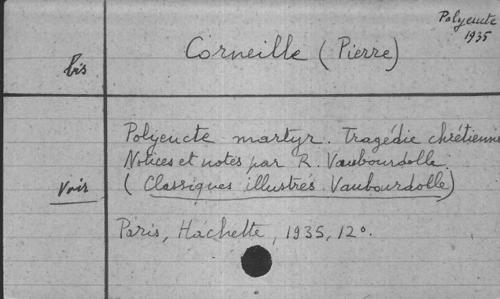 Polyeucte
1935
bis
Corneille (Pierre)
Polyeucte martyr. Tragédie chrétienne
Notices et notes par R. Vaubourdolle.
Voir
(Classiques illustrés Vaubourdolle)
Paris, Hachette, 1935, 12°.